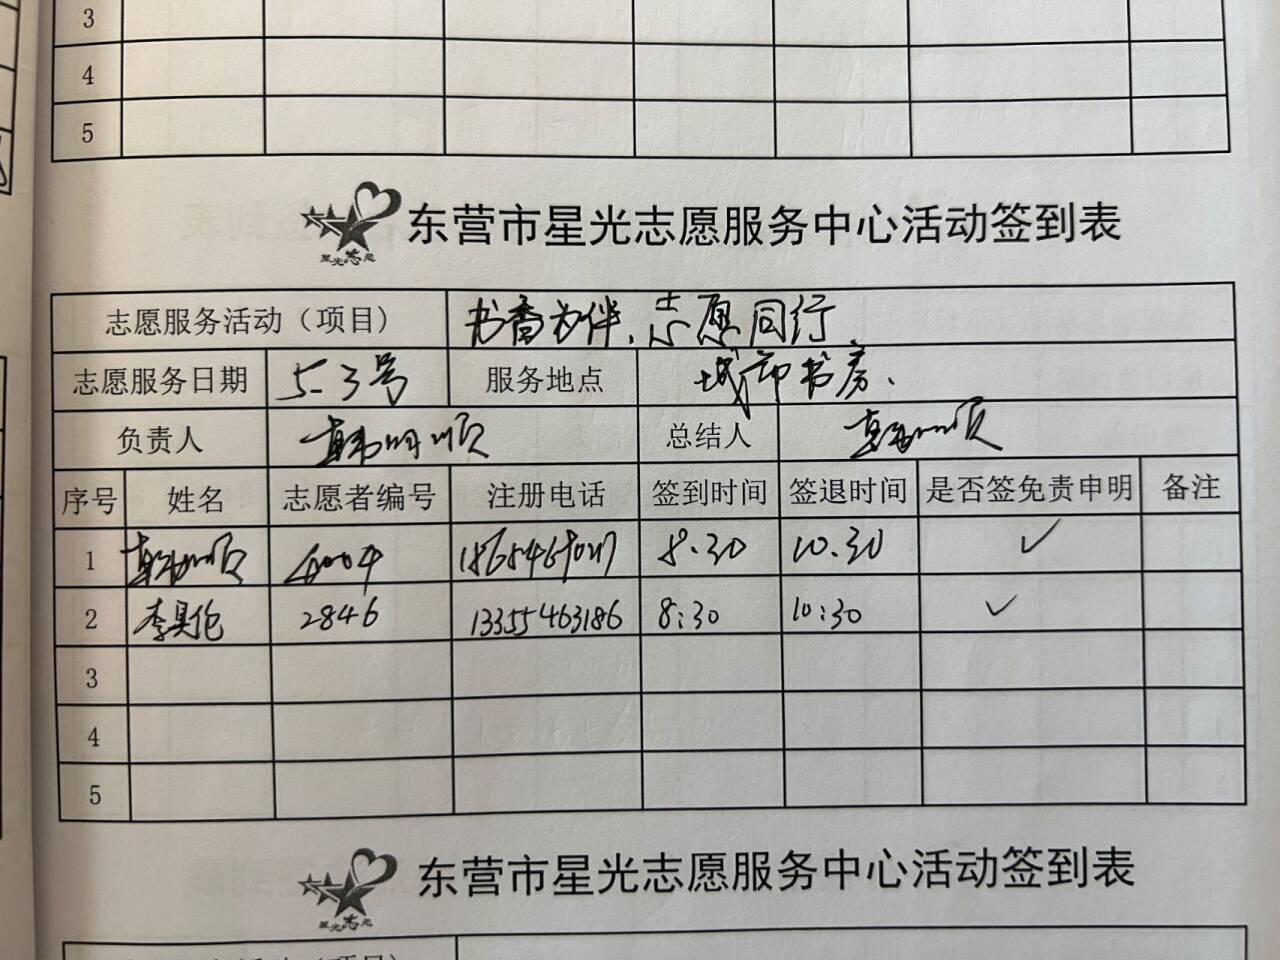 3
4
5
星光志愿
东营市星光志愿服务中心活动签到表
志愿服务活动（项目） 书香为伴、志愿同行
志愿服务日期 5-3号 服务地点 城市书房、
负责人 韩明顺 总结人 韩明顺
序号 姓名 志愿者编号 注册电话 签到时间 签退时间 是否签免责申明 备注
1 韩明顺 6004 8.30 10.30 ✓
2 李昊伦 2846 13355463186 8:30 10:30 ✓
3
4
5
星光志愿
东营市星光志愿服务中心活动签到表